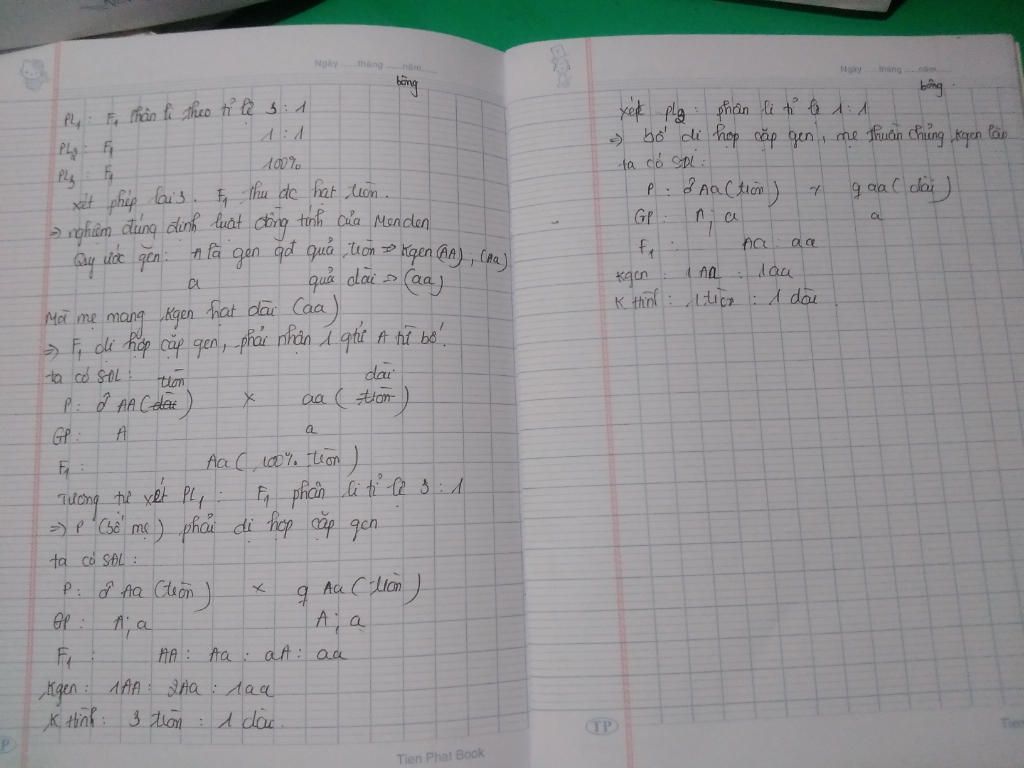 Ngày......tháng......năm......
bông
PL₁: F₁ phân li theo tỉ lệ 3:1
PL₂: F₁ 1:1
PL₃: F₁ 100%
xét phép lai 3. F₁ thu dc hạt tròn.
⇒ nghiệm đúng định luật đồng tính của Menden
Quy ước gen: A là gen qđ quả tròn ⇒ Kgen (AA), (Aa)
a quả dài ⇒ (aa)
Mà mẹ mang Kgen hạt dài (aa)
⇒ F₁ dị hợp cặp gen, phải nhận 1 gtử A từ bố.
ta có SĐL: tròn dài
P: ♂ AA (dài) x aa (tròn)
GP: A a
F₁: Aa (100% tròn)
Tương tự xét PL₁: F₁ phân li tỉ lệ 3:1
⇒ P (bố mẹ) phải dị hợp cặp gen
ta có SĐL:
P: ♂ Aa (tròn) x ♀ Aa (tròn)
GP: A; a A; a
F₁: AA: Aa: aA: aa
Kgen: 1AA: 2Aa: 1aa
K hình: 3 tròn: 1 dài.
Tien Phat Book
Ngày......tháng......năm......
bông
xét PL2: phân li tỉ lệ 1:1
⇒ bố dị hợp cặp gen, mẹ thuần chủng, Kgen lặn
ta có SĐL:
P: ♂ Aa (tròn) x ♀ aa (dài)
GP: A; a a
F₁: Aa: aa
Kgen: 1Aa: 1aa
K hình: 1 tròn: 1 dài.
TP
Tien